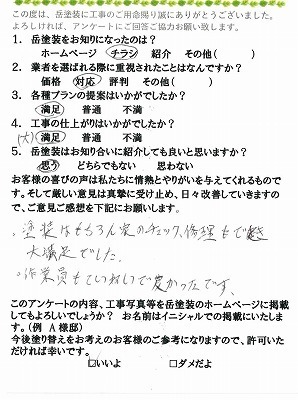 この度は、岳塗装に工事のご用命賜り誠にありがとうございました。
よろしければ、アンケートにご回答ご協力お願い致します。
1. 岳塗装をお知りになったのは？
ホームページ チラシ 紹介 その他( )
2. 業者を選ばれる際に重視されたことはなんですか？
価格 対応 評判 その他( )
3. 各種プランの提案はいかがでしたか？
満足 普通 不満
4. 工事の仕上がりはいかがでしたか？
(大) 満足 普通 不満
5. 岳塗装はお知り合いに紹介しても良いと思いますか？
思う どちらでもない 思わない
お客様の喜びの声は私たちに情熱とやりがいを与えてくれるものです。そして厳しい意見は真摯に受け止め、日々改善していきますので、ご意見ご感想を下記にお願いします。
・塗装はもちろん家のチェック、修理もでき
大満足でした。
・作業員もていねいで良かったです。
このアンケートの内容、工事写真等を岳塗装のホームページに掲載
してもよろしいでしょうか？ お名前はイニシャルでの掲載にいたしま
す。(例 A 様邸)
今後塗り替えをお考えのお客様のご参考になりますので、許可いた
だければ幸いです。
□いいよ □ダメだよ